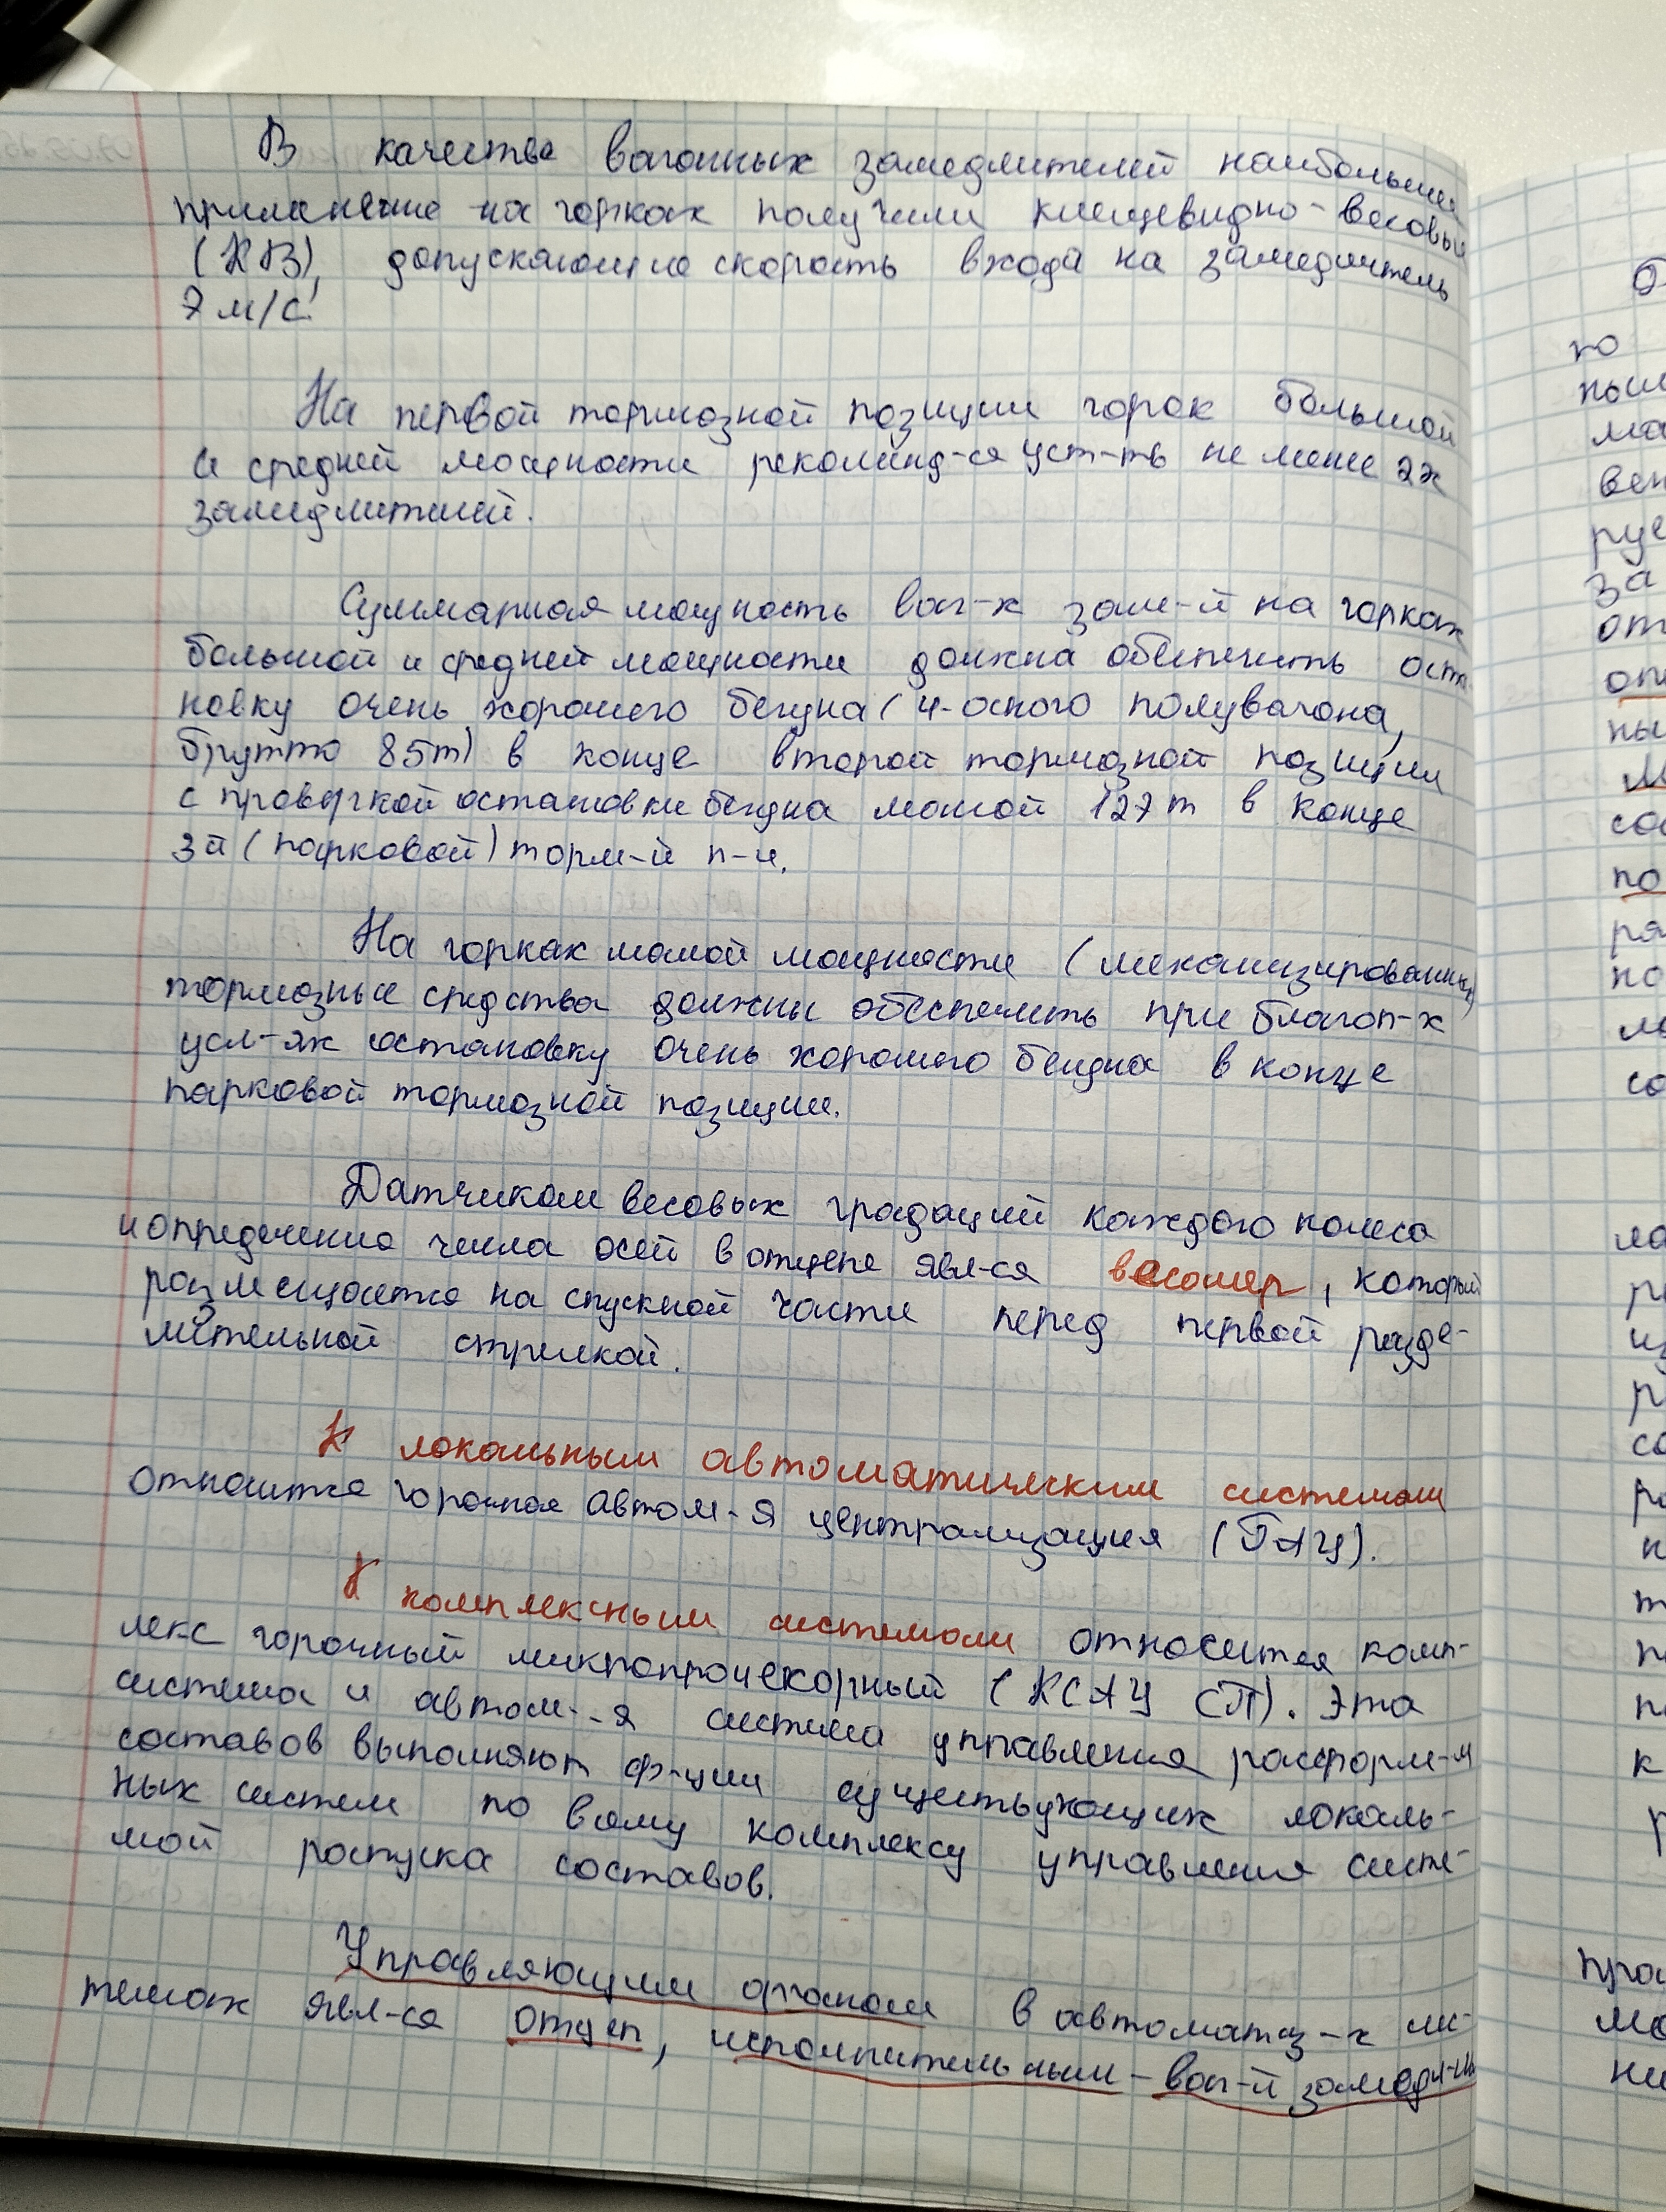 В качестве вагонных замедлителей наибольшее
применение на горках получили клещевидно-весовые
(КВ), допускающие скорость входа на замедлитель
7 м/с.
На первой тормозной позиции горок большой
и средней мощности рекоменд-ся уст-ть не менее 2х
замедлителей.
Суммарная мощность ваг-х заме-й на горках
большой и средней мощности должна обеспечить оста-
новку очень хорошего бегуна (4-осного полувагона,
брутто 85т) в конце второй тормозной позиции
с проверкой остановки бегуна массой 127т в конце
3й (парковой) торм-й п-и.
На горках малой мощности (механизированных)
тормозные средства должны обеспечить при благоп-х
усл-ях остановку очень хорошего бегуна в конце
парковой тормозной позиции.
Датчиком весовых градаций каждого колеса
и определение числа осей в отцепе явл-ся весомер, который
размещается на спускной части перед первой разде-
лительной стрелкой.
К локальным автоматическим системам
относится горочная автом-я централизация (ГАЦ).
К комплексным системам относится комп-
лекс горочный микропроцекорный (КСАУ СП). Эта
система и автом-я система управления расформ-я
составов выполняют ф-ции существующих локаль-
ных систем по всему комплексу управления систе-
мой роспуска составов.
Управляющим органом в автоматиз-х сис-
темах явл-ся отцеп, исполнительным - ваг-й замедл-ль